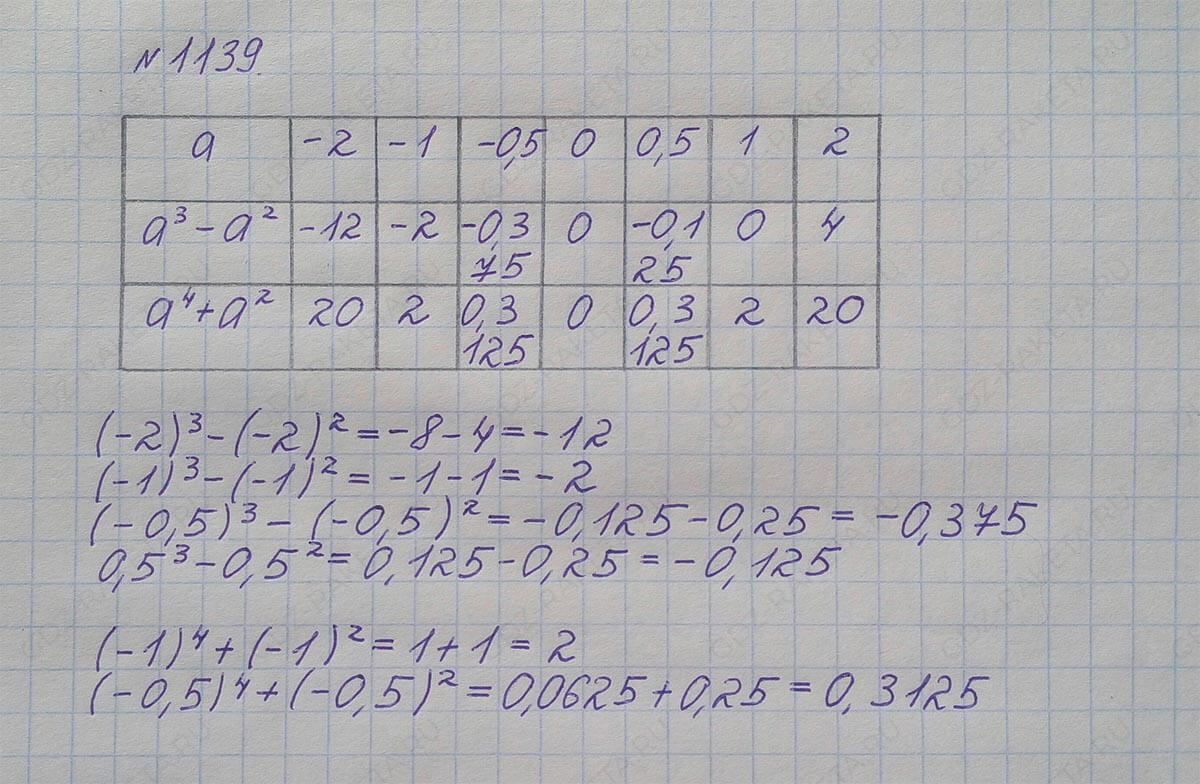 № 1139.
a -2 -1 -0,5 0 0,5 1 2
a³-a² -12 -2 -0,375 0 -0,125 0 4
a⁴+a² 20 2 0,3125 0 0,3125 2 20
(-2)³-(-2)²=-8-4=-12
(-1)³-(-1)²=-1-1=-2
(-0,5)³-(-0,5)²=-0,125-0,25=-0,375
0,5³-0,5²=0,125-0,25=-0,125
(-1)⁴+(-1)²=1+1=2
(-0,5)⁴+(-0,5)²=0,0625+0,25=0,3125